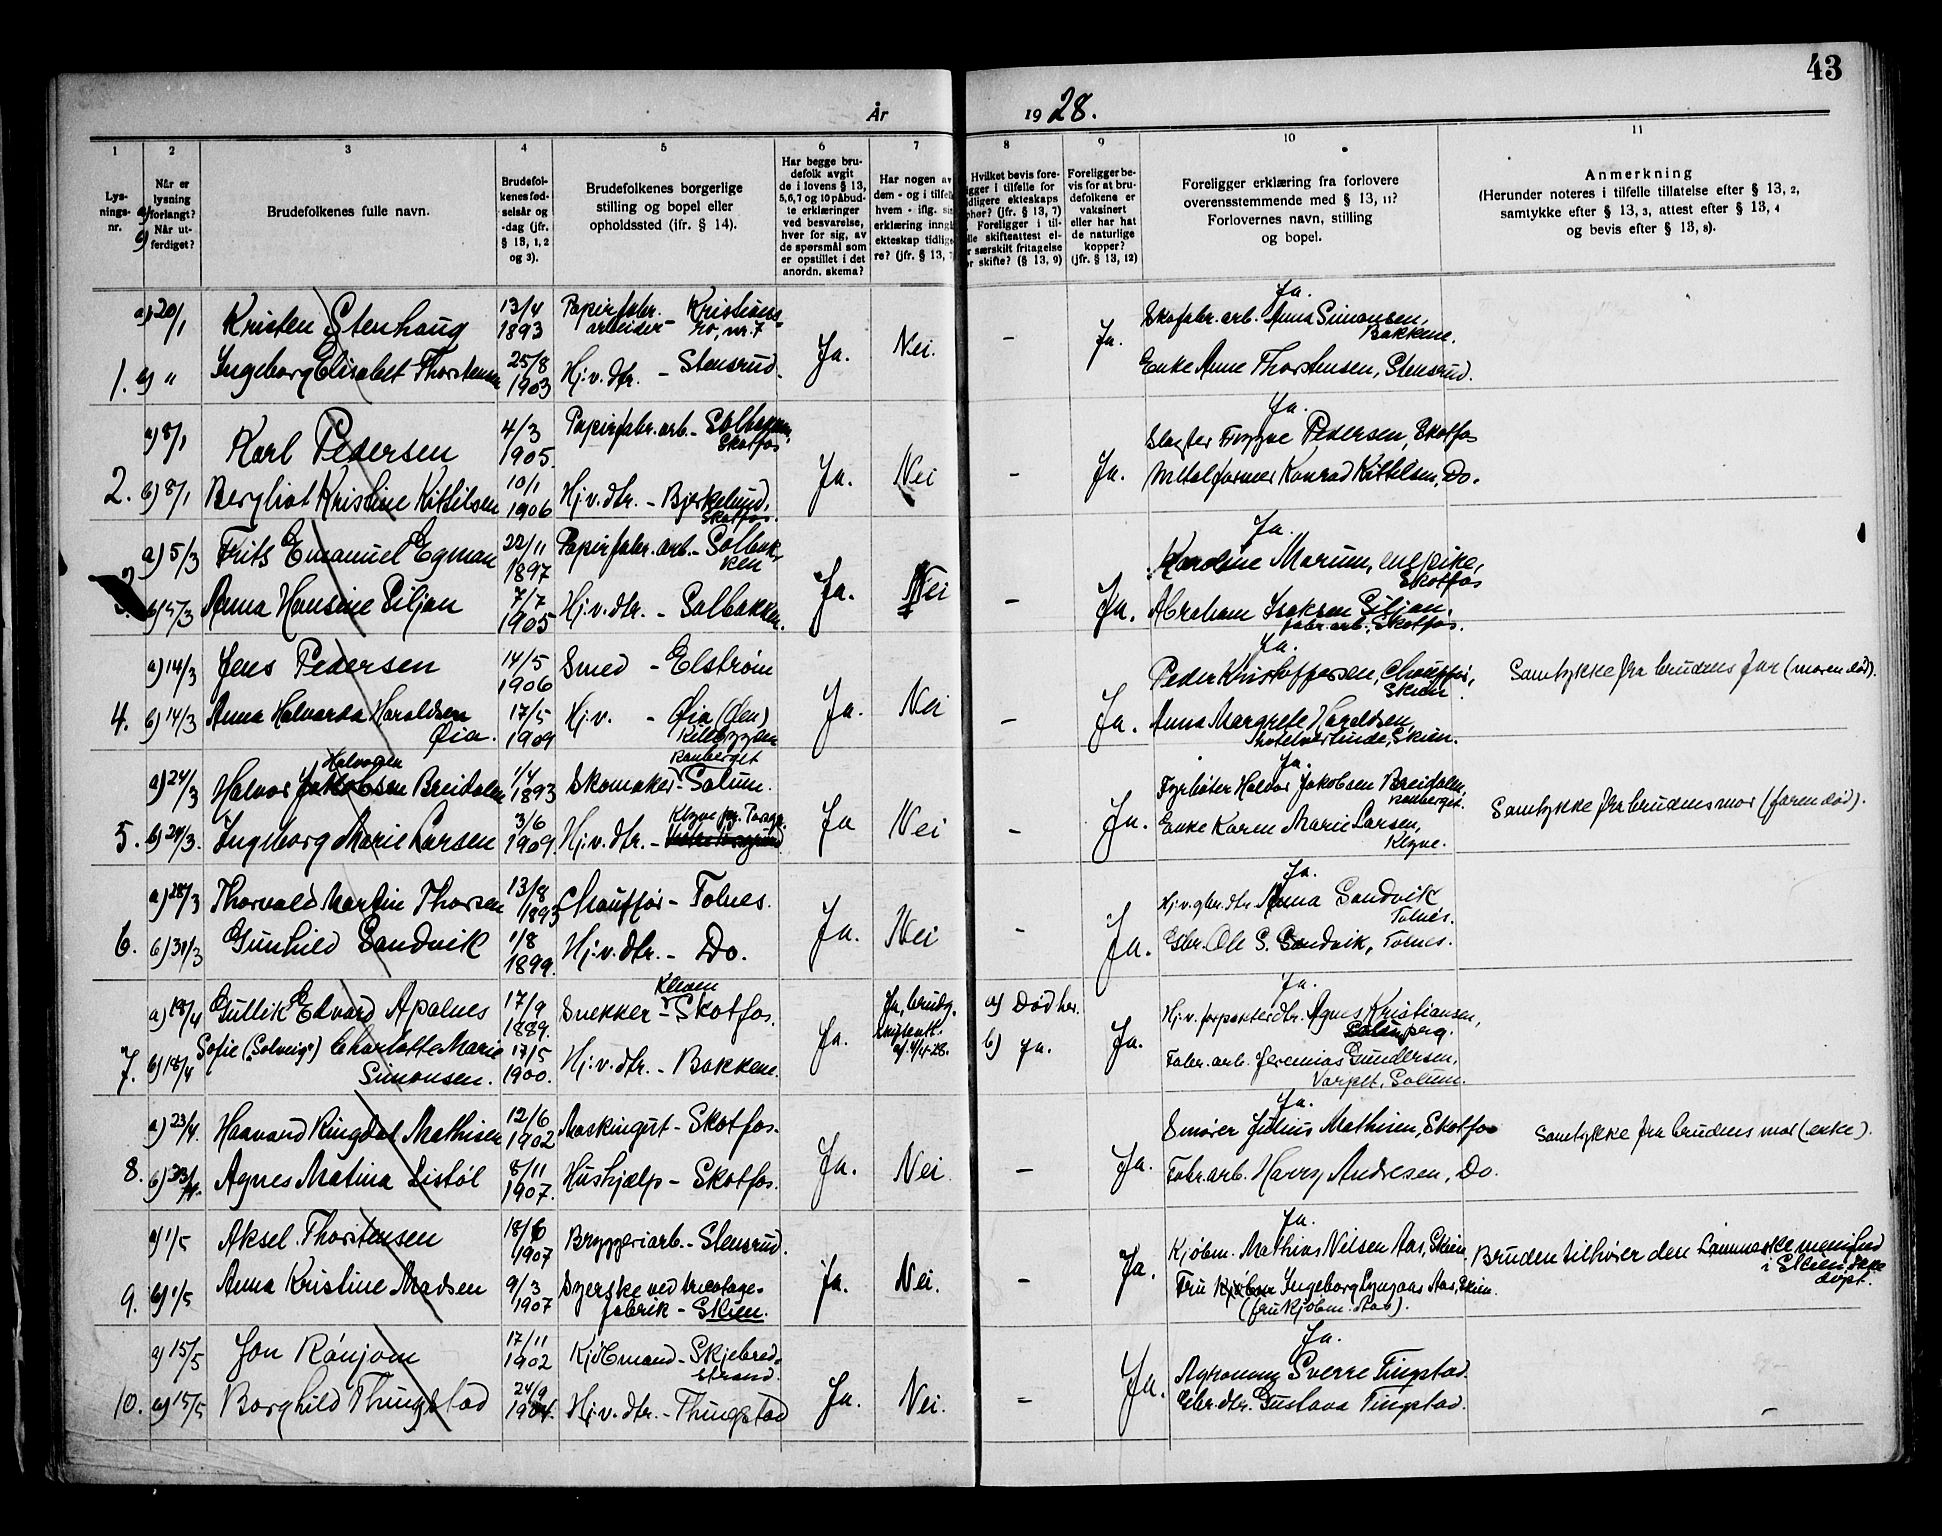 43
År
1928.
1
2
3
4
5
6
7
8
9
10
11
Lys-
nings-
nr.
Når er
lysning
forlangt?
Når ut-
ferdiget?
a)
b)
Brudefolkenes fulle navn.
Brudefol-
kenes fød-
selsår og
-dag (jfr.
§ 13, 1, 2
og 3).
Brudefolkenes borgerlige
stilling og bopel eller
opholdssted (jfr. § 14).
Har begge bru-
defolk avgit
de i lovens § 13,
5, 6, 7 og 10 påbud-
te erklæringer
ved besvarelse,
hver for sig, av
de spørsmål som
er opstillet i det
anordn. skema?
Har nogen av
dem - og i tilfelle
hvem - iflg. sin
erklæring inngå
ekteskap tidlige-
re? (jfr. § 13, 7
Hvilket bevis fore-
ligger i tilfelle for
tidligere ekteskaps
ophør? (jfr. § 13, 7)
Foreligger i til-
felle skifteattest el-
r særskilt fritagelse
or skifte? (§ 13, 9)
Foreligger be-
vis for at bru-
defolkene er
vaksinert
eller har hat
de naturlige
kopper?
(jfr. § 13, 12)
Foreligger erklæring fra forlovere
overensstemmende med § 13, 11?
Forlovernes navn, stilling
og bopel.
Anmerkning
(Herunder noteres i tilfelle tillatelse efter § 13, 2,
samtykke efter § 13, 3, attest efter § 13, 4
og bevis efter § 13, 8).
1.
a) 20/1
Kristen Stenhaug
13/4
1893
Papirfabr.
arbeider - Kristians-
ro, nr. 7
b) "
Ingeborg Elisabet Thorstensen
25/8
1903
Hj.v. dtr. - Stensrud.
Ja.
Nei.
-
Ja.
Ja.
Skofabr. arb. Anna Simonsen,
Bakkene.
Enke Anne Thorstensen, Stensrud.
2.
a) 8/1
Karl Pedersen
4/3
1905.
Papirfabr. arb. - Solbakken,
Skotfos
b) 8/1
Bergliot Kristine Kittilsen
10/1
1906
Hj.v. dtr. - Bjerkelund,
Skotfos.
Ja.
Nei
-
Ja.
Ja.
Slagter Trygve Pedersen, Skotfos
Metalformer Konrad Kittilsen, Do.
3.
a) 5/3
Frits Emanuel Egman
22/11
1897
Papirfabr. arb. - Solbak-
ken
b) 5/3
Anna Hansine Siljan
7/7
1905
Hj.v. dtr. - Solbakken.
Ja.
Nei
-
Ja.
Ja.
Karoline Marum, ung pike,
Skotfos
Abraham Isaksen Siljan,
fabr. arb. Skotfos.
4.
a) 14/3
Jens Pedersen
14/5
1906
Smed - Elstrøm
b) 14/3
Anna Halvarda Haraldsen
Øia.
17/5
1909
Hj.v. - Øia (Øen)
Kilebygden
Ja.
Nei
-
Ja.
Ja.
Peder Kristoffersen, Chauffør,
Skien
Anna Margrete Haraldsen,
hotelvertinde, Skien.
Samtykke fra brudens far (moren død).
5.
a) 24/3
Halvorsen
Halvor Jakobsen Breidalen
1/4
1893
Ranberget
Skomaker - Solum.
b) 24/3.
Ingeborg Marie Larsen
3/6
1909.
Klyve pr. Porsgr.
Hj.v. dtr. - Vestre Porsgrund
Ja
Nei
-
Ja.
Ja.
Fyrbøter Halvor Jakobsen Breidalen,
Ranberget.
Enke Karen Marie Larsen,
Klyve.
Samtykke fra brudens mor (faren død).
6.
a) 28/3
Thorvald Martin Thorsen
13/8
1893
Chauffør - Tolnes.
b) 31/3
Gunhild Sandvik
1/8
1899.
Hj.v. dtr. - Do.
Ja.
Nei
-
Ja.
Ja.
Hj.v. gbr. dtr. Anna Sandvik
Tolnes.
Gbr. Ole S. Sandvik, Tolnes.
7.
a) 18/4
Gullik Edvard Apalnes
17/9
1889.
Kleven
Snekker - Skotfos.
b) 18/4
Sofie (Solveig) Charlotte Marie
Simonsen.
17/5
1900.
Hj.v. dtr. - Bakkene.
Ja.
Ja, brudg.
Skifteatt.
a) Død her.
b) ja.
Ja.
Ja.
Hj.v. forpakter dtr. Agnes Kristiansen,
Fabr. arb. Jeremias Gundersen,
Varpet, Solum.
8.
a) 23/4.
Haavard Ringdal Mathisen
12/6
1902
Maskingut - Skotfos.
b) 23/4.
Agnes Matina Listøl
8/11
1907.
Hushjælp - Skotfos.
Ja.
Nei
-
Ja.
Ja.
Smører Julius Mathisen, Skotfos
Fabr. arb. Harry Andresen, Do.
Samtykke fra brudens mor (enke).
9.
a) 1/5
Aksel Thorstensen
18/6
1907
Bryggeriarb. - Stensrud.
b) 1/5
Anna Kristine Madsen
9/3
1907
Syerske ved tricotage-
fabrik - Skien.
Ja.
Nei.
-
Ja.
Ja.
Kjøbm. Mathias Nilsen Aas, Skien.
Fru Kjøbm Ingeborg Lyngaas Aas, Skien.
(fru Kjøbm. Aas).
Bruden tilhører den Lammerske menighed
i Skien. Ikke
døpt.
10.
a) 15/5
Jon Rønjom
17/11
1902
Kjøbmand - Skjebred-
strand.
b) 15/5
Borghild Thingstad
24/9
1904.
Hj.v. dtr. - Thingstad
Ja.
Nei.
-
Ja.
Ja.
Agronom Sverre Tingstad.
Gbr. dtr. Gustava Tingstad.
-